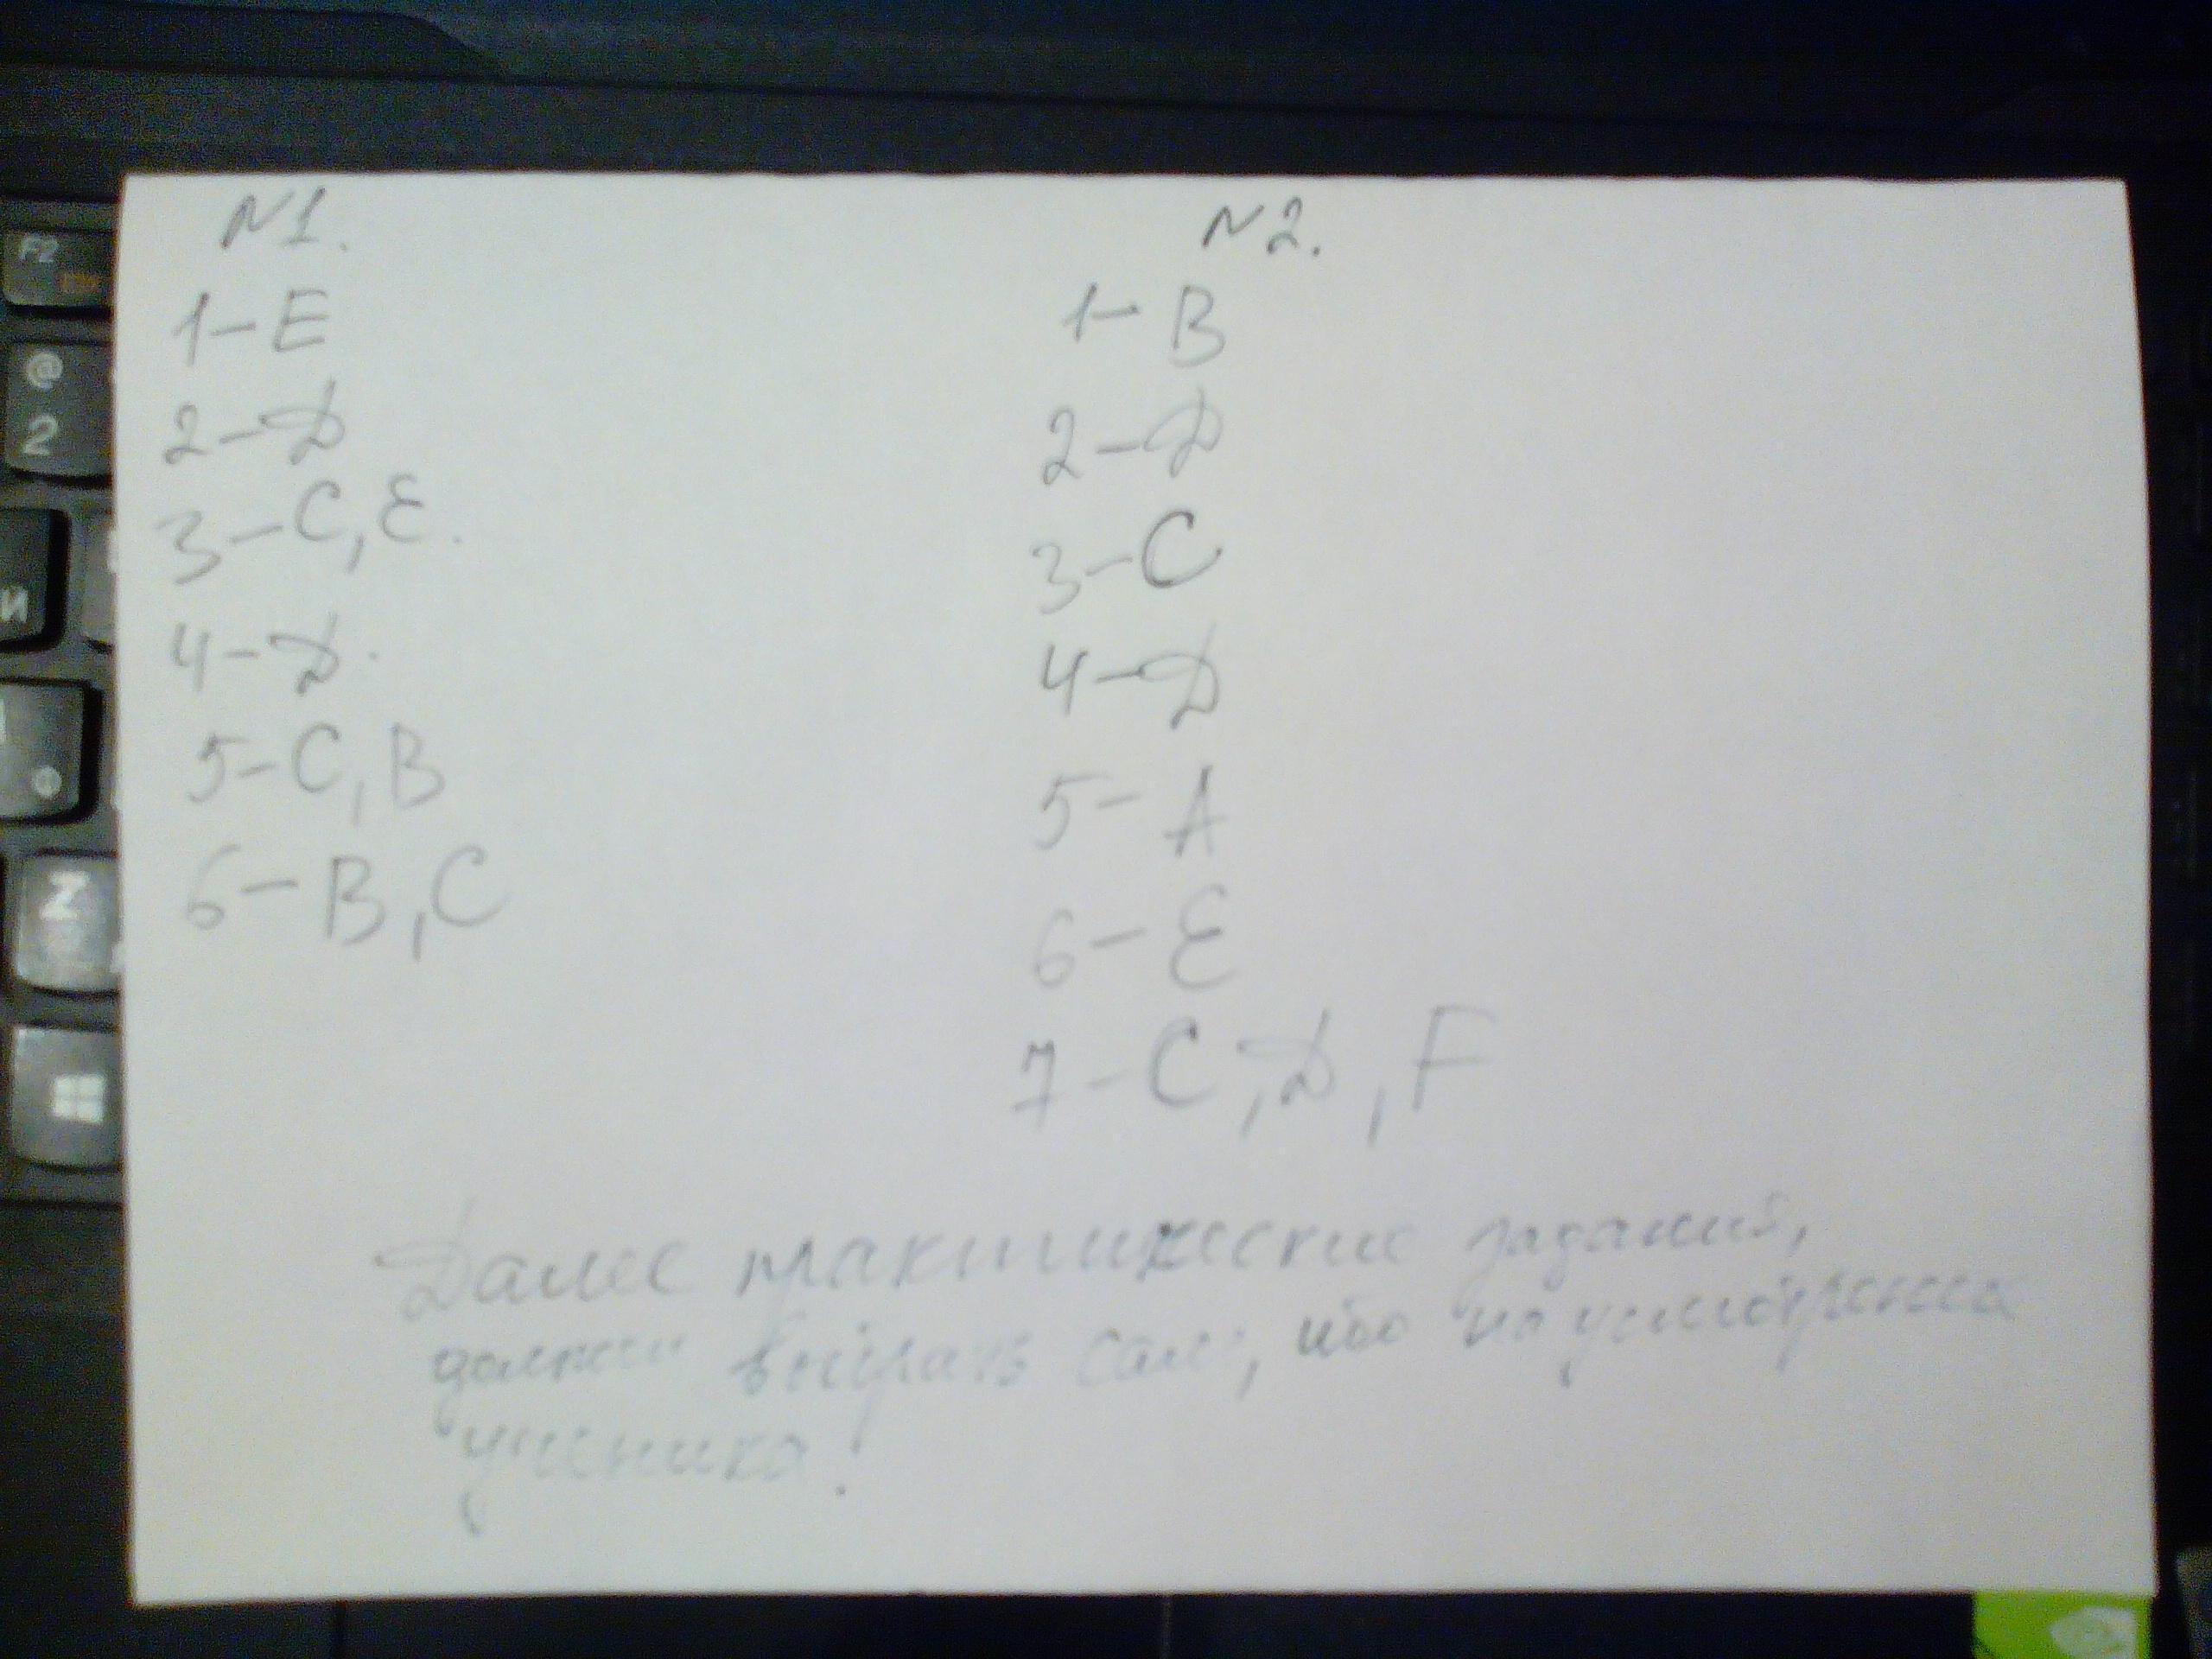 N1.
1-E
2-D
3-C, E.
4-D.
5-C, B
6-B, C
N2.
1-B
2-D
3-C
4-D
5-A
6-E
7-C, D, F
Далее практические задания,
должен выбрать сам, ибо на усмотрение
ученика!
F2
@
2
И
Z